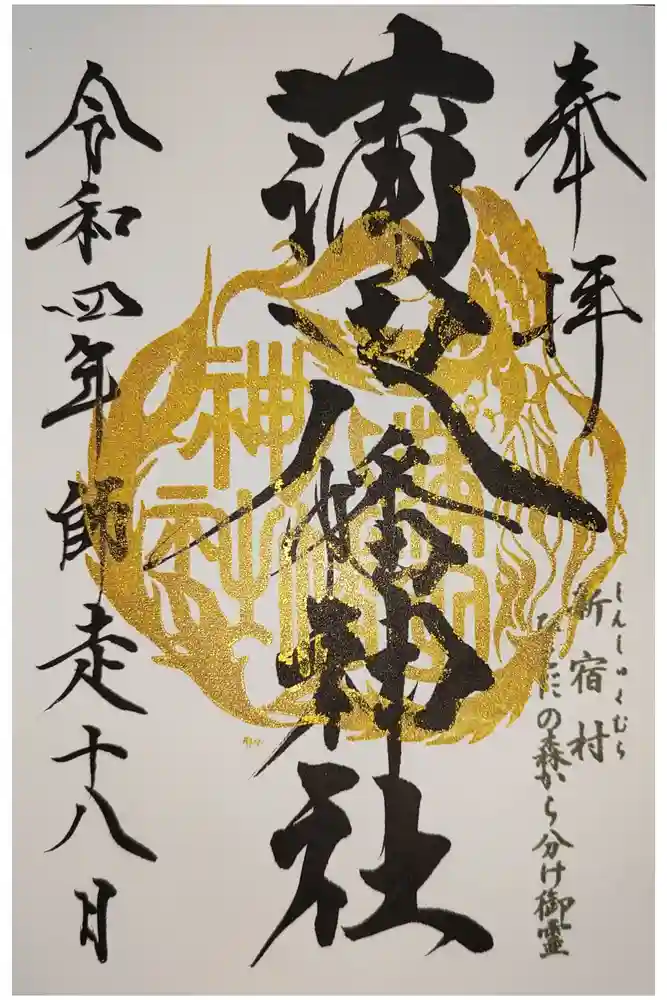 奉拝
しんしゅくむら
新宿村
ひえだの森から分け御靈
蒲田八幡神社
神社
令和四年師走十八日